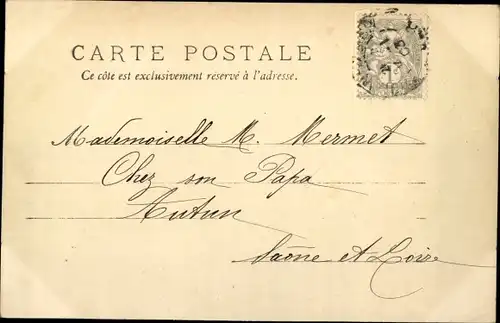 CARTE POSTALE
Ce côté est exclusivement réservé à l'adresse.
Mademoiselle M. Mermet
Chez son Papa
Autun
Saône et Loire